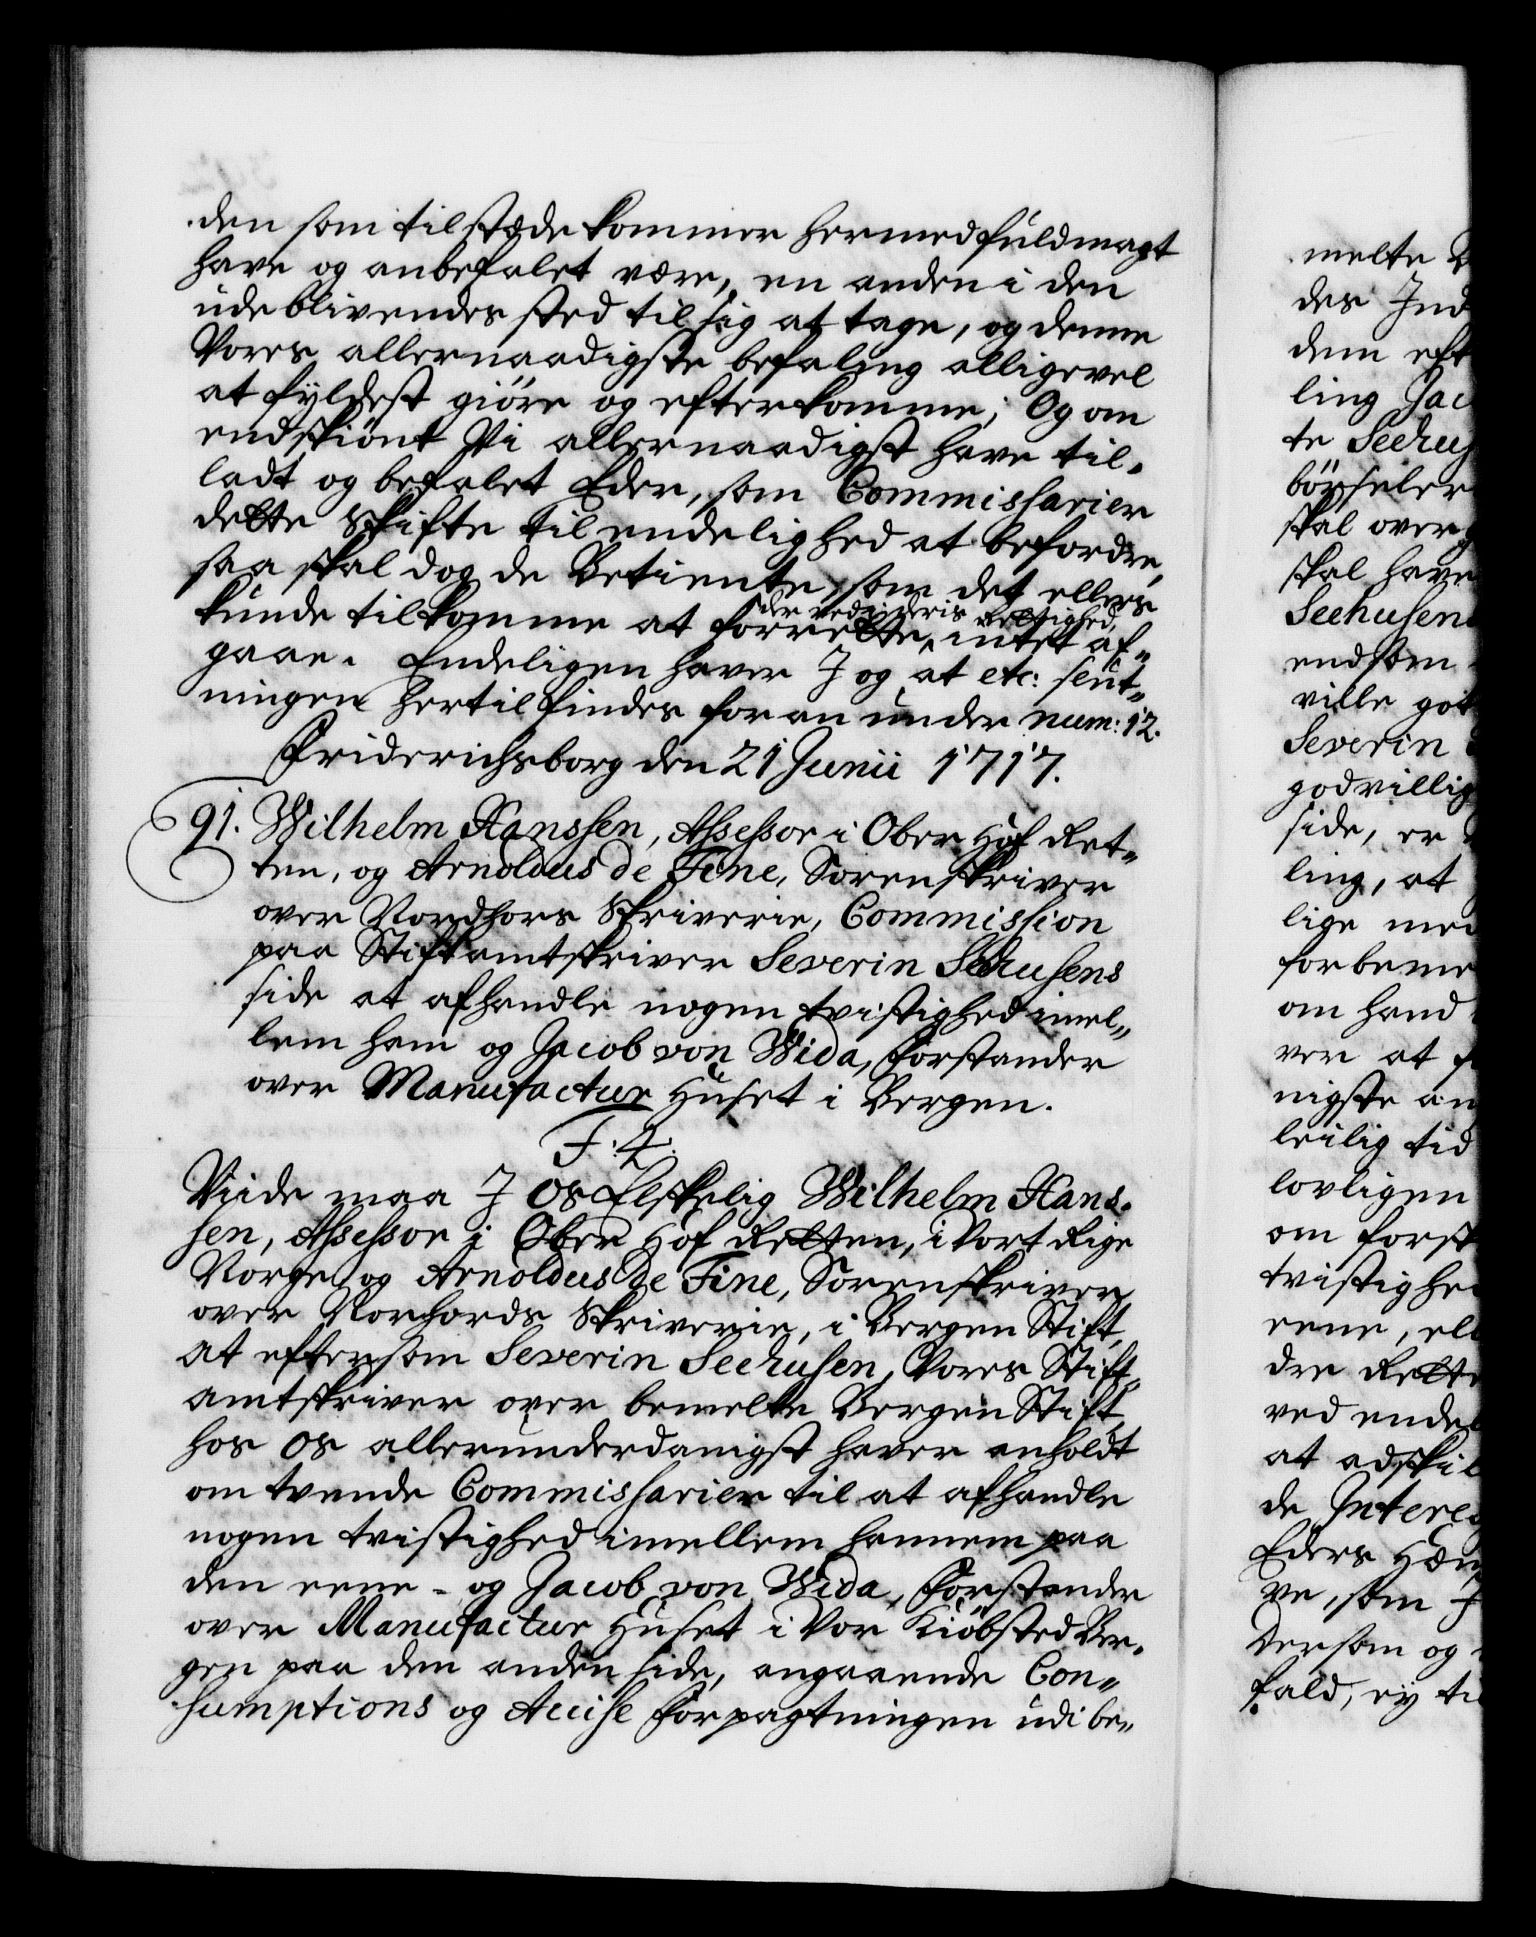 den som tilstæde kommer hermed fuldmagt
have og anbefalet være, en anden i den
udeblivendes sted til sig at tage, og denne
Vores allernaadigste befaling alligevel
at fyldest giøre og efterkomme; Og om
endskiønt Vi allernaadigst have til-
ladt og befalet Eder, som Commissarier
dette Skifte til endelighed at befordre,
saa skal dog de Betiente, som det ellers
der ved i deris Rettighed
kunde tilkomme at forrette, intet af-
gaae. Endeligen haver J og at etc: slut-
ningen hertil findes foran under num: 12.
Friderichsborg den 21 Junii 1717.
91. Wilhelm Hanssen, Assessor i Ober Hof Ret-
ten, og Arnoldus de Fine, Sorenskriver
over Nordhors Skriverie, Commission
paa Stiftamtskriver Severin Seehusens
side at afhandle nogen tvistighed imel-
lem ham og Jacob von Wida, Forstander
over Manufactur Huset i Bergen.
F: 4.
Viide maa J Os Elskelig Wilhelm Hans-
sen, Assessor i Ober Hof Retten, i Vort Rige
Norge, og Arnoldus de Fine, Sorenskriver
over Norhords Skriverie, i Bergen Stift,
at eftersom Severin Seehusen, Vores Stift-
amtskriver over bemelte Bergen Stift,
hos Os allerunderdanigst haver anholdt
om tvende Commissarier til at afhandle
nogen tvistighed imellem hannem paa
den eene - og Jacob von Wida, Forstander
over Manufactur Huset i Vor Kiøbsted Ber-
gen paa den anden side, angaaende Con-
sumptions og Accise Forpagtningen udi be-
melte
des Ind
dem eft
ling Jac
te Seehus
skal over
skal have
Seehusen
endsom
ville got
Severin
godvillig
side, er
ling, at
lige med
forbeme
om hand
ver at
nigste an
leilig tid
lovligen
om forst
tvistighe
eene, ell
dre Rette
ved endel
at adskil
de Interes
Eders Hæn
ve, som J
Dersom og
fald, ey ti